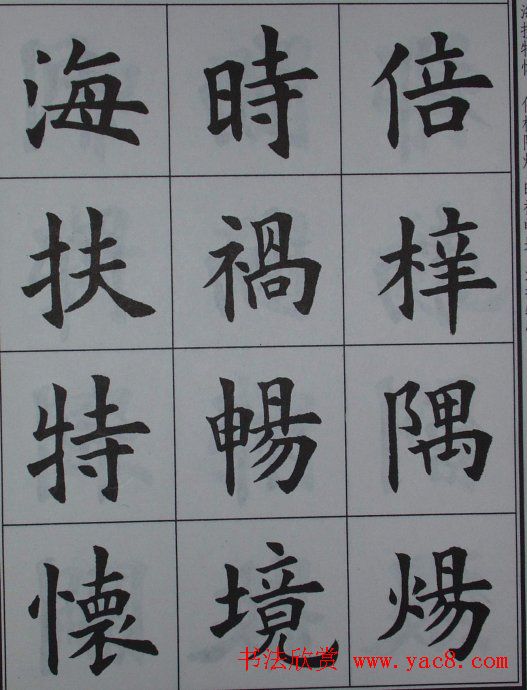 倍梓隅煬
時禍暢境
海扶特懷
书法欣赏 www.yac8.com